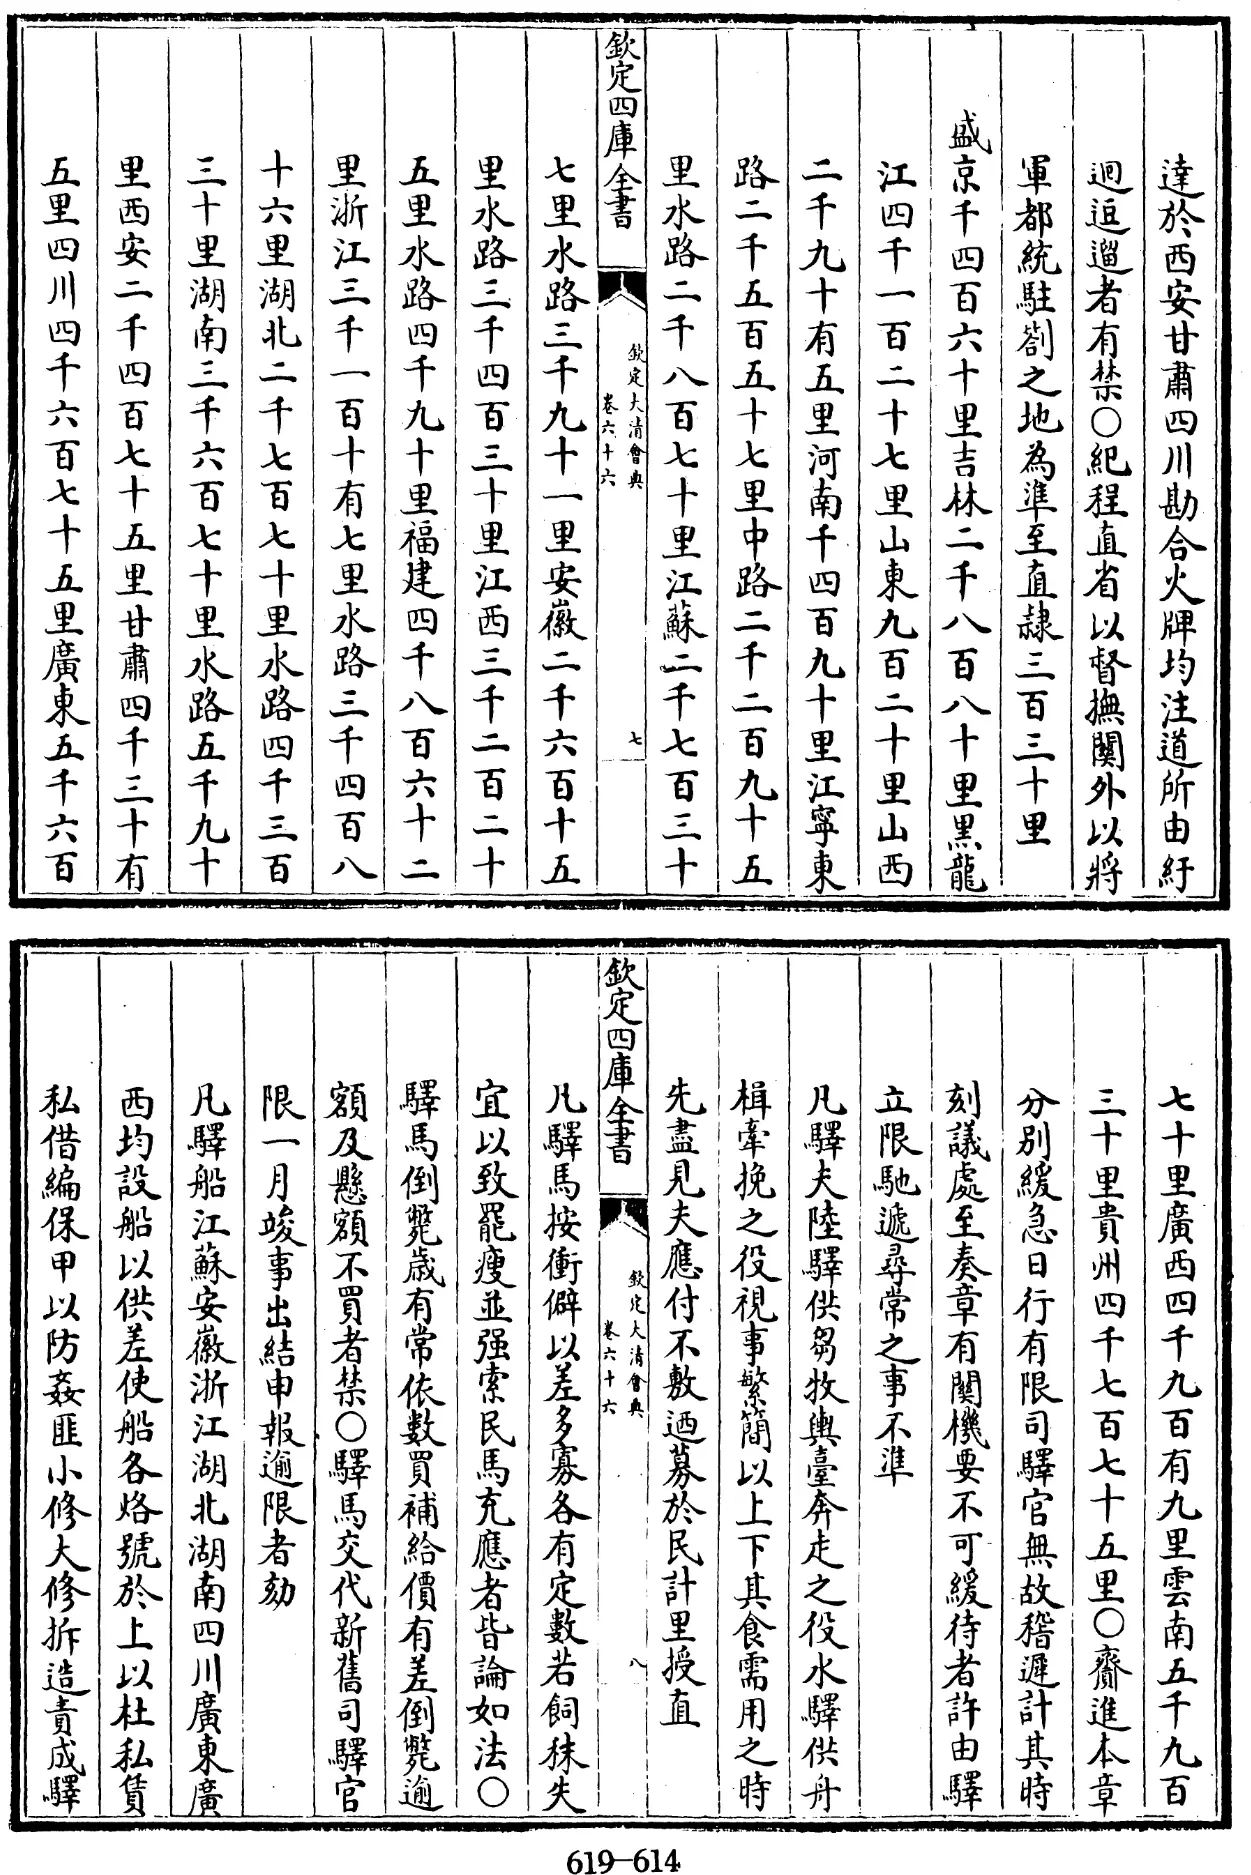 達於西安甘肅四川勘合火牌均注道所由紆
迴逗遛者有禁○紀程直省以督撫關外以將
軍都統駐劄之地為準至直隸三百三十里
盛京千四百六十里吉林二千八百八十里黑龍
江四千一百二十七里山東九百二十里山西
二千九十有五里河南千四百九十里江寧東
路二千五百五十七里中路二千二百九十五
里水路二千八百七十里江蘇二千七百三十
欽定四庫全書
欽定大清會典
卷六十六
七
七里水路三千九十一里安徽二千六百十五
里水路三千四百三十里江西三千二百二十
五里水路四千九十里福建四千八百六十二
里浙江三千一百十有七里水路三千四百八
十六里湖北二千七百七十里水路四千三百
三十里湖南三千六百七十里水路五千九十
里西安二千四百七十五里甘肅四千三十有
五里四川四千六百七十五里廣東五千六百
七十里廣西四千九百有九里雲南五千九百
三十里貴州四千七百七十五里○齎進本章
分別緩急日行有限司驛官無故稽遲計其時
刻議處至奏章有關機要不可緩待者許由驛
立限馳遞尋常之事不準
凡驛夫陸驛供芻牧輿臺奔走之役水驛供舟
楫牽挽之役視事繁簡以上下其食需用之時
先盡見夫應付不敷迺募於民計里授直
欽定四庫全書
欽定大清會典
卷六十六
八
凡驛馬按衝僻以差多寡各有定數若飼秣失
宜以致罷瘦並强索民馬充應者皆論如法○
驛馬倒斃歲有常依數買補給價有差倒斃逾
額及懸額不買者禁○驛馬交代新舊司驛官
限一月竣事出結申報逾限者劾
凡驛船江蘇安徽浙江湖北湖南四川廣東廣
西均設船以供差使船各烙號於上以杜私賃
私借編保甲以防姦匪小修大修拆造責成驛
619-614